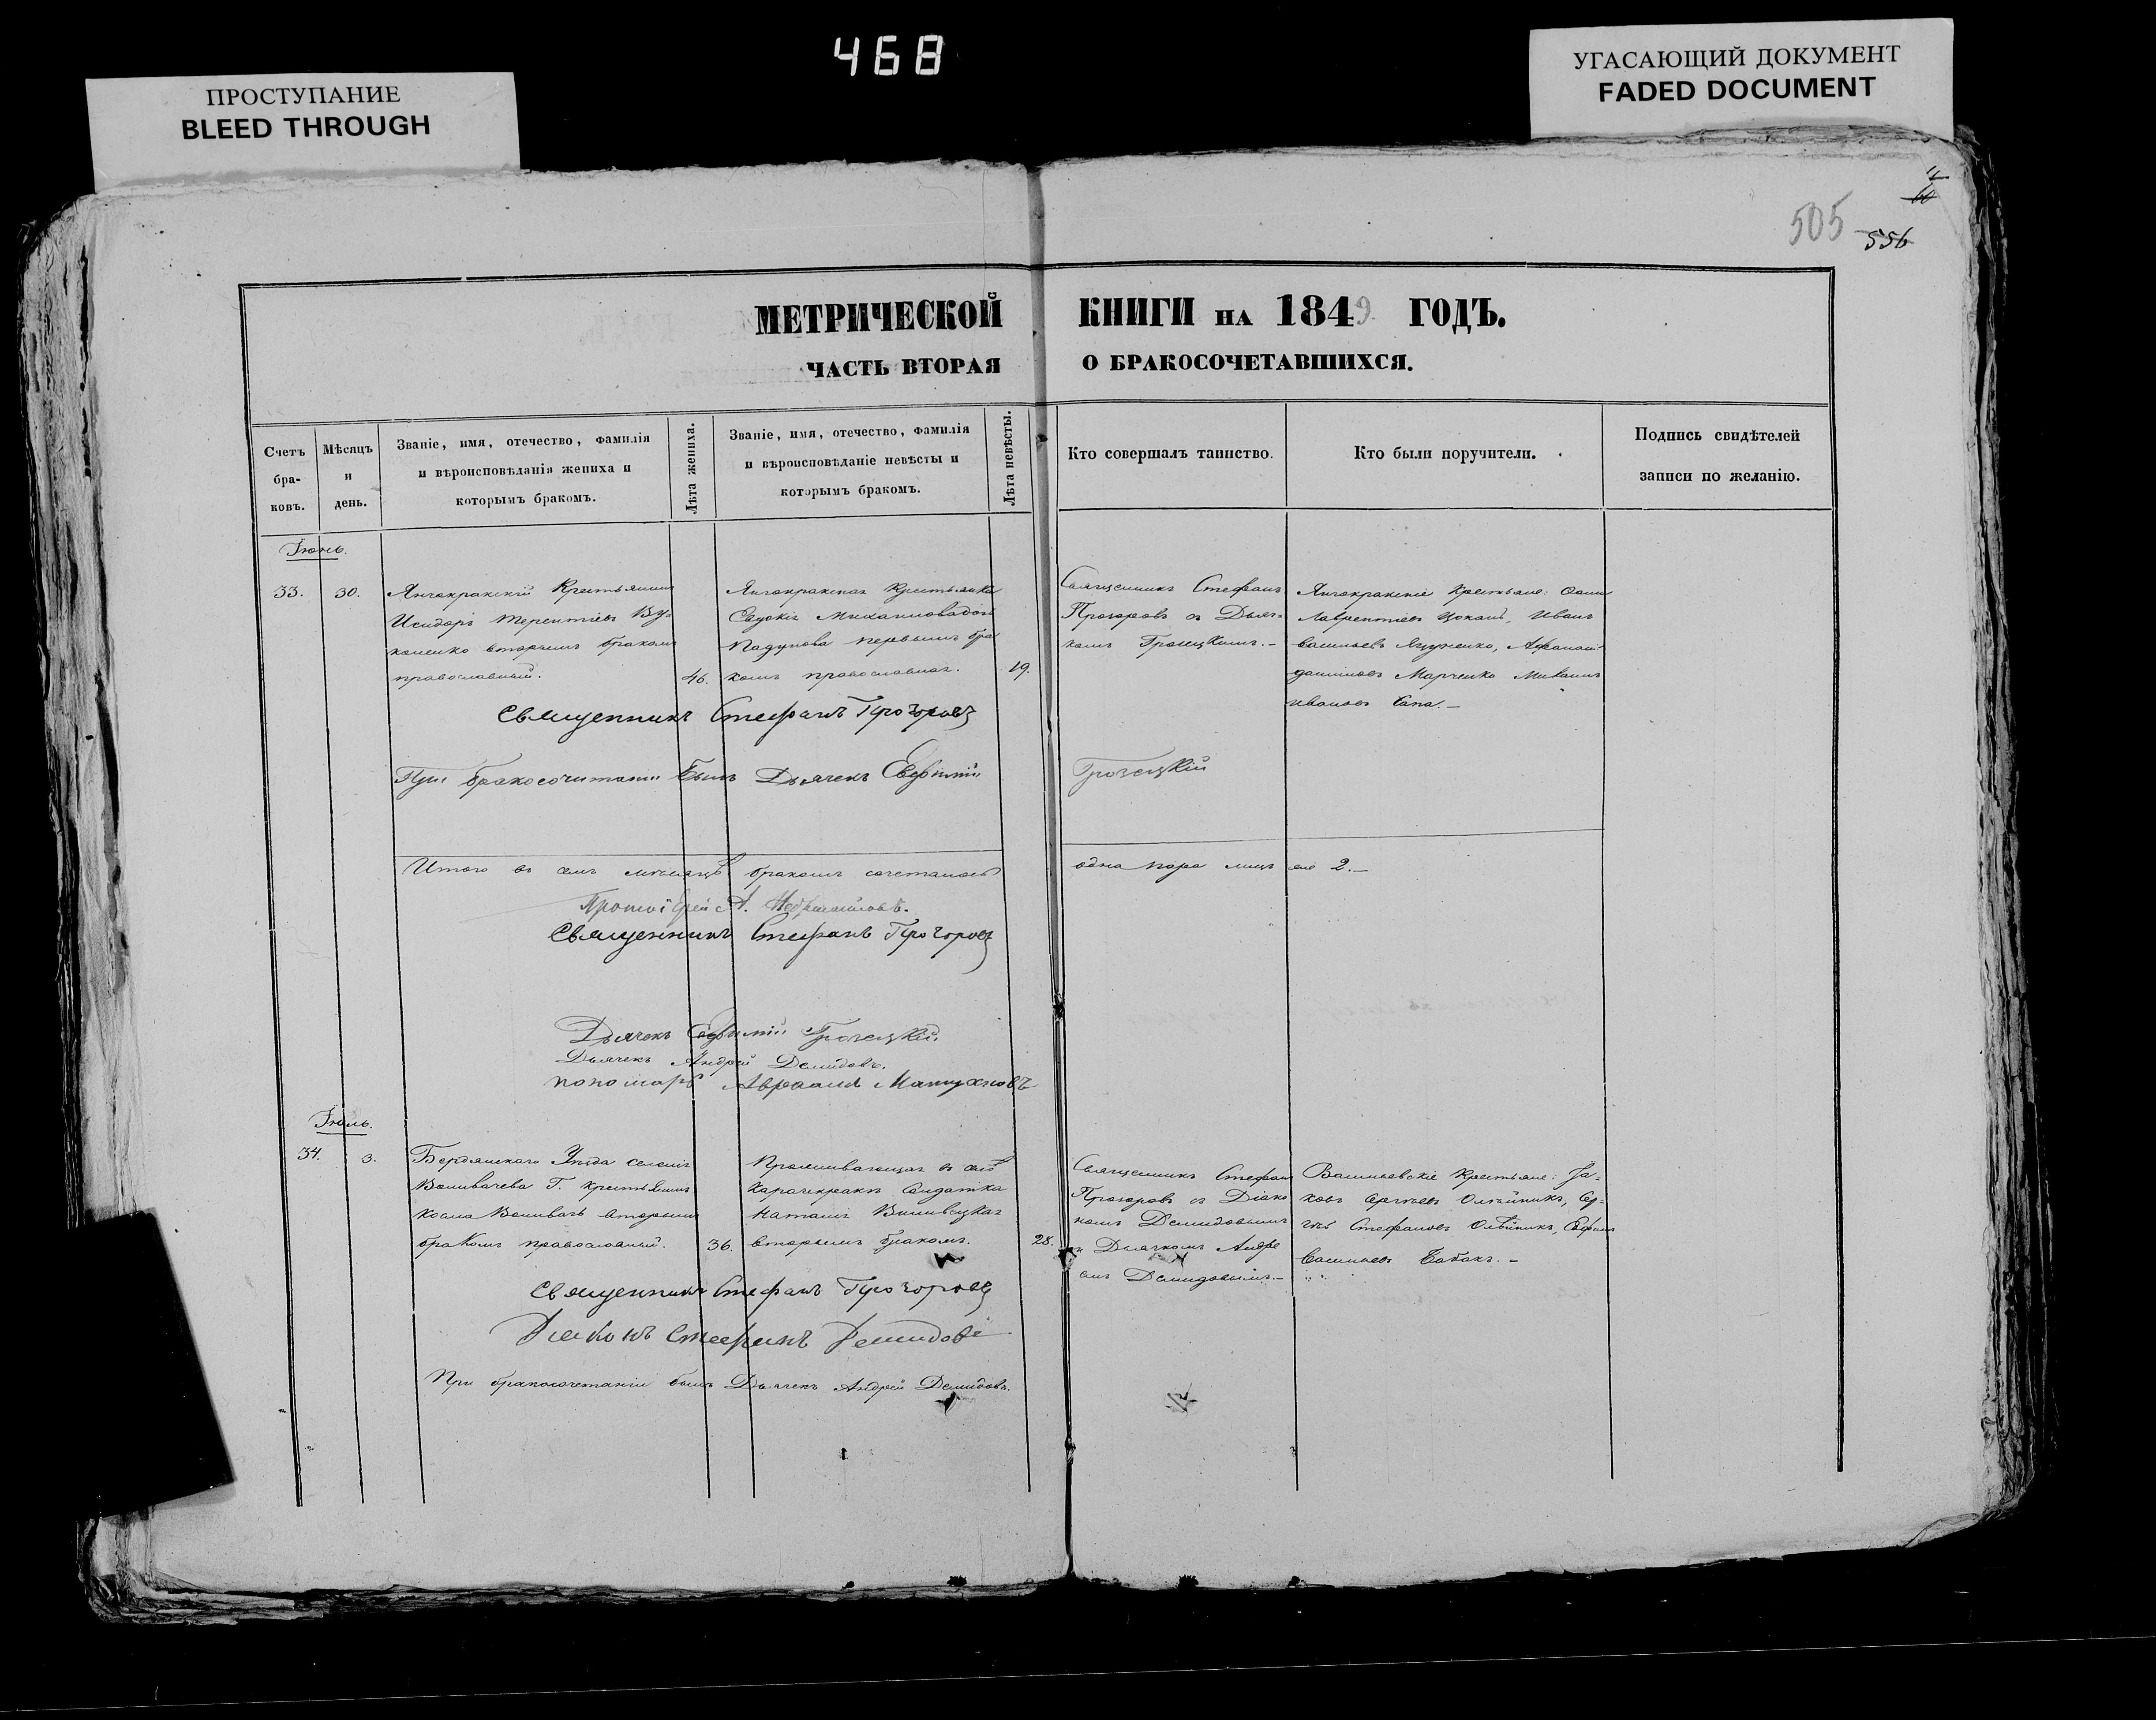 468
ПРОСТУПАНИЕ
BLEED THROUGH
УГАСАЮЩИЙ ДОКУМЕНТ
FADED DOCUMENT
505 556
МЕТРИЧЕСКОЙ КНИГИ НА 1849 ГОДЪ.
ЧАСТЬ ВТОРАЯ О БРАКОСОЧЕТАВШИХСЯ.
Счетъ
бра-
ковъ.
Мѣсяцъ
и
день.
Званіе, имя, отечество, фамилія
и вѣроисповѣданія жениха и
которымъ бракомъ.
Лѣта жениха.
Званіе, имя, отечество, фамилія
и вѣроисповѣданіе невѣсты и
которымъ бракомъ.
Лѣта невѣсты.
Кто совершалъ таинство.
Кто были поручители.
Подпись свидѣтелей
записи по желанію.
Іюнь.
33.
30.
Янчокракскій Крестьянинъ
Исидоръ Терентіевъ
вторымъ бракомъ
православный.
46.
Янчокракская Крестьянка
Евдокія Михаилова дочь
Падунова первымъ бра
комъ православная.
19.
Священникъ Стефанъ
Прозоровъ съ Дьяч-
комъ
Янчокракскіе Крестьяне:
Лаврентіевъ Иванъ
Васильевъ
Марченко
Ивановъ Сапа.—
Священникъ Стефанъ Прозоровъ
При бракосочитаніи былъ Дьячекъ Евфимій
Итого въ семъ мѣсяцѣ бракомъ сочеталось одна пара лицъ 2.—
Протоіерей А.
Священникъ Стефанъ Прозоровъ
Дьячекъ Евфимій
Дьячекъ Андрей Демидовъ.
пономарь Авраамъ
Іюль.
34.
3.
Бердянскаго Уѣзда селенія
Г. крестьянинъ
Косма вторымъ
бракомъ православный.
36.
Проживающая въ селѣ
Карачекракъ Солдатка
Наталія
вторымъ бракомъ.
28.
Священникъ Стефанъ
Прозоровъ съ Діако
номъ Демидовымъ
и Дьячкомъ Андре
емъ Демидовымъ.—
Васильевскіе Крестьяне: Іа-
ковъ Сергѣевъ Олѣйникъ, Сер-
гѣй Стефановъ Олѣйникъ,
Васильевъ Бабакъ.—
Священникъ Стефанъ Прозоровъ
Діаконъ Стефанъ Демидовъ
При бракосочетаніи былъ Дьячекъ Андрей Демидовъ.